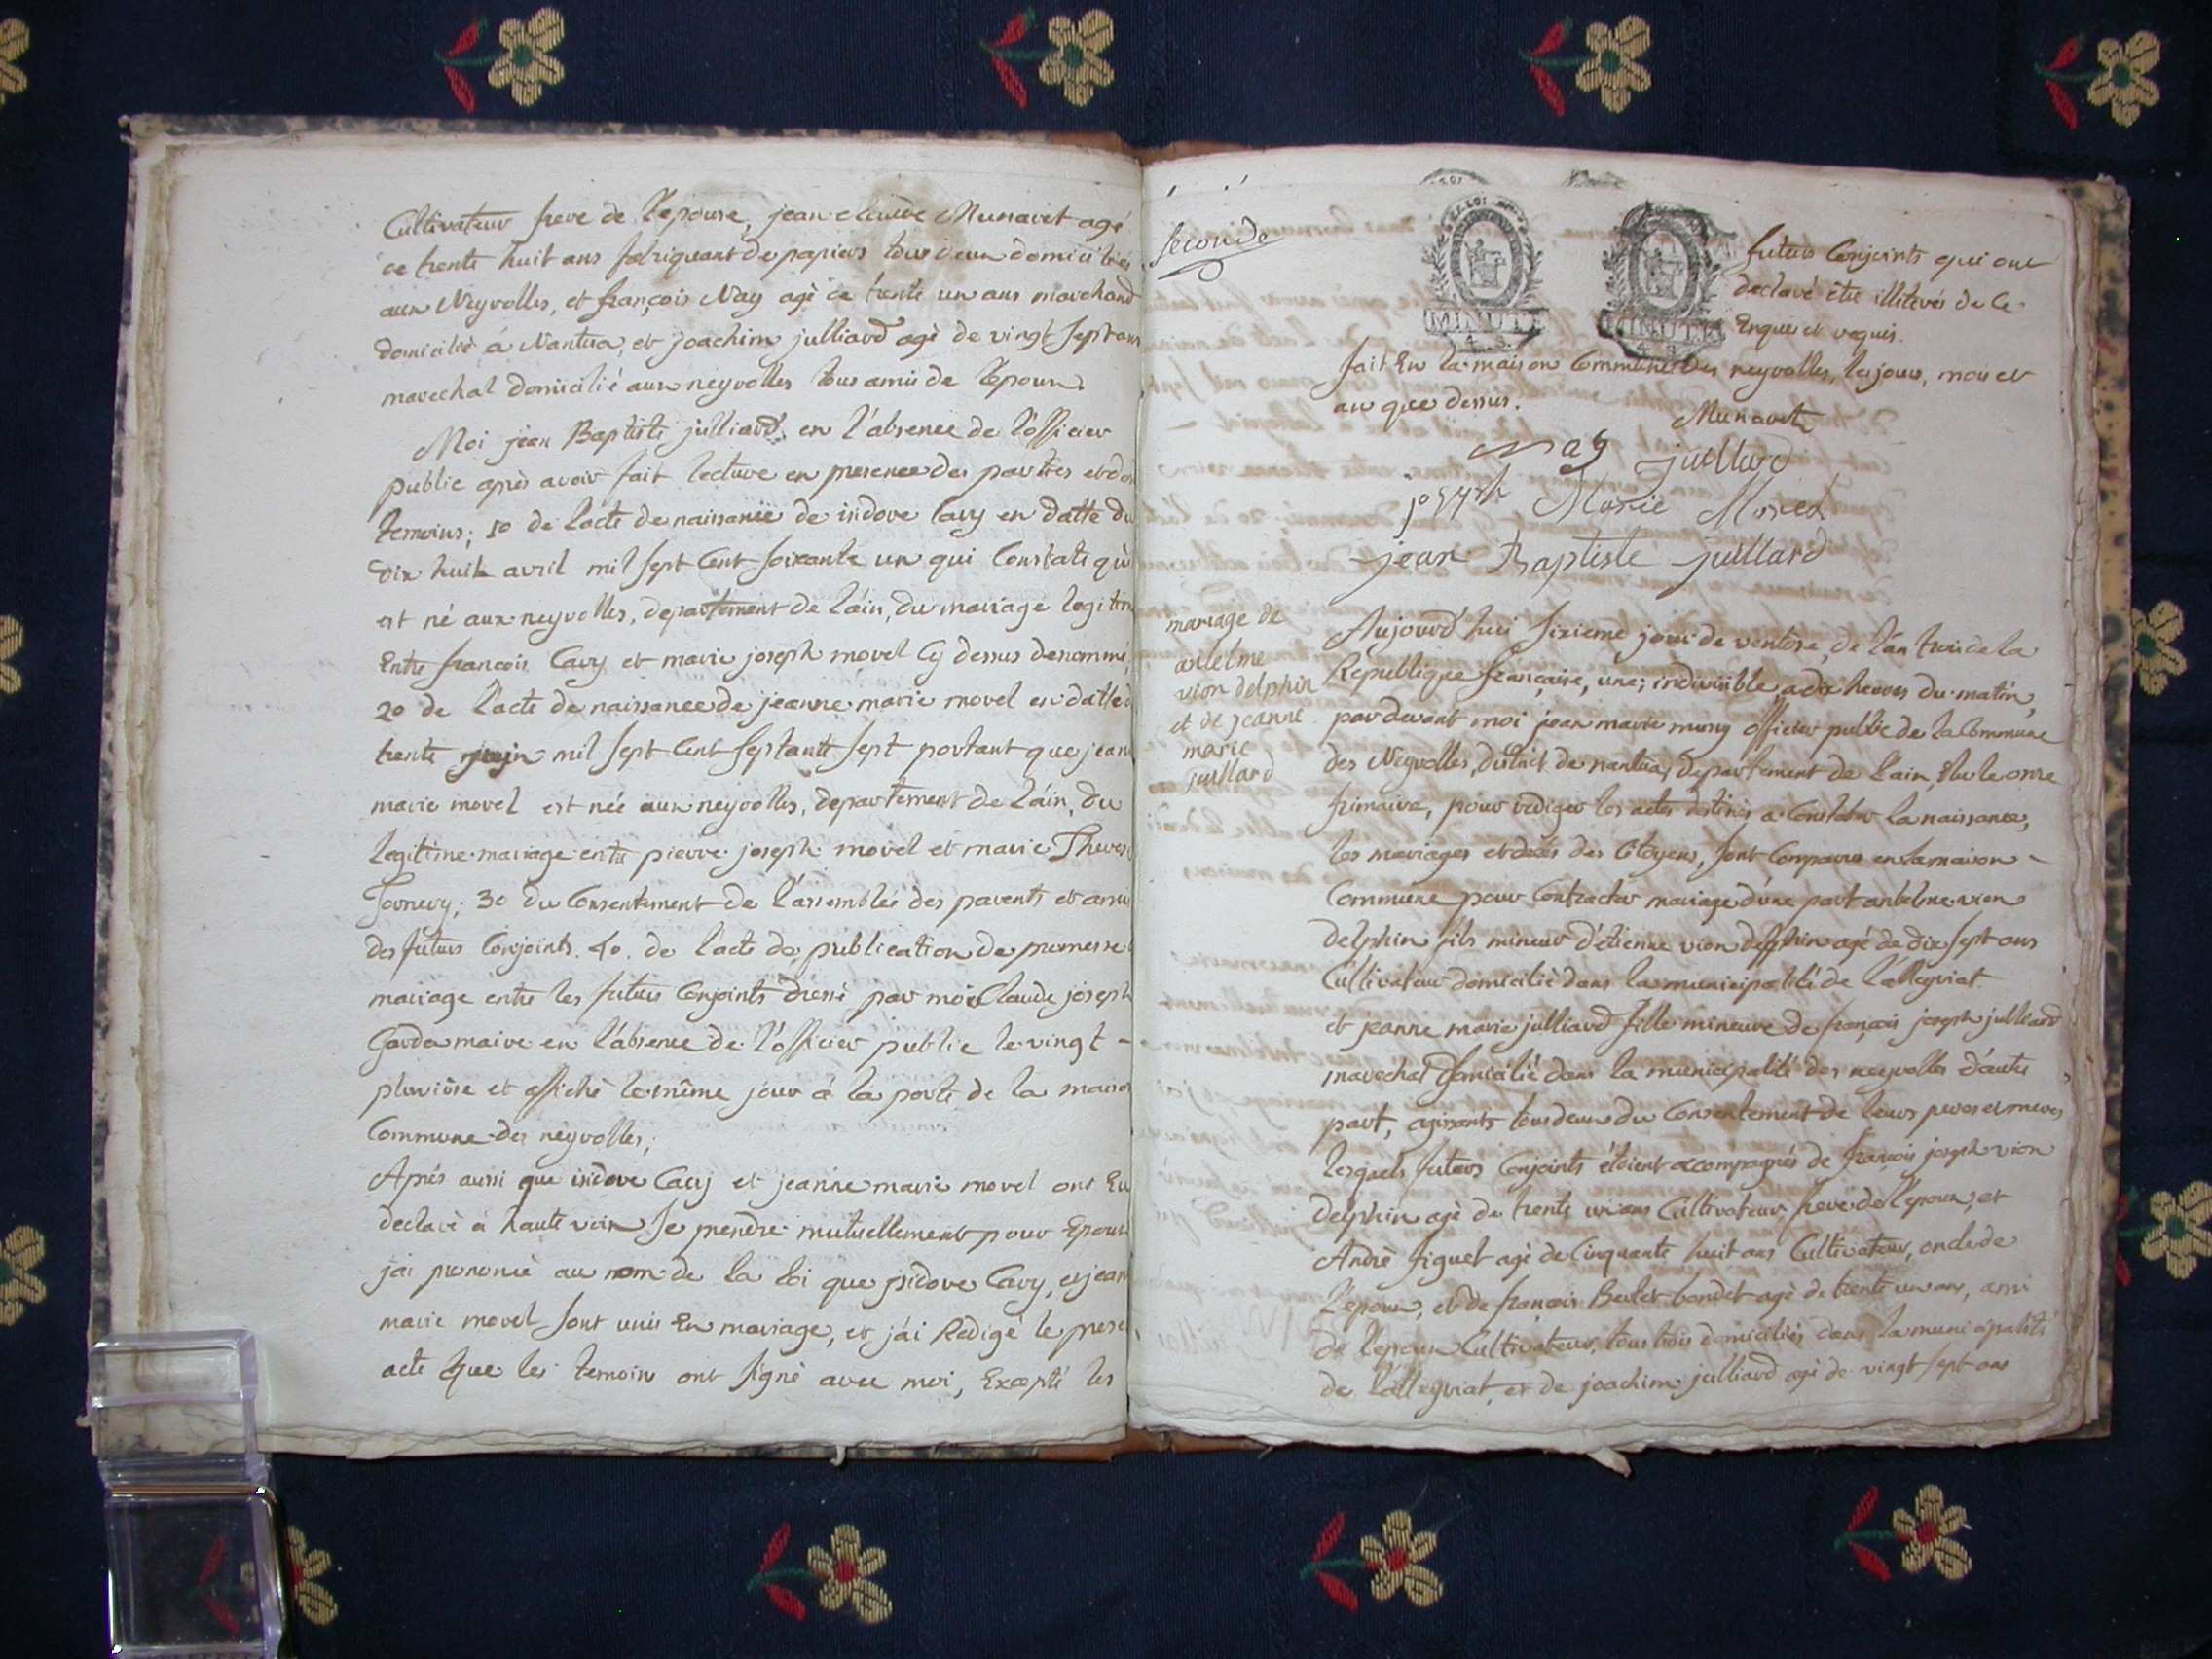 Cultivateur frere de l'epouse, jean claude Munaret agé
de trente huit ans fabriquant de papiers tous deux domiciliés
aux Neyrolles, et françois Nay agé de trente un ans marchand
domicilié á Nantua, et joachim julliard agé de vingt sept ans
marechal domicilié aux neyrolles tous amis de l'epoux.
Moi jean Baptiste julliard en l'absence de l'officier
public après avoir fait lecture en presence des parties et des
temoins; 1o de l'acte de naissance de isidore Cavy en datte du
dix huit avril mil sept cent soixante un qui Constate qu'
est né aux neyrolles, departement de l'ain, du mariage legitim
Entre francois Cavy et marie joseph morel Cy dessus denommé,
2o de l'acte de naissance de jeanne marie morel en datte d
trente juin mil sept Cent septante sept portant que jean
marie morel est née aux neyrolles, departement de l'áin, du
legitime mariage entre pierre joseph morel et marie Theres
3o du Consentement de l'assemblée des parents et amis
des futurs Conjoints. 4o. de l'acte de publication de promesse
mariage entre les futurs Conjoints dressé par moi Claude joseph
Garda maire en l'absence de l'officier public le vingt -
pluviôse et affiché le même jour á la porte de la maison
Commune des neyrolles;
Aprés aussi que isidore Cavy et jeanne marie morel ont Eu
declaré á haute voix se prendre mutuellement pour Epoux
j'ai prononcé au nom de la loi que isidore Cavy, et jean
marie morel sont unis En mariage, et j'ai Redigé le prese
acte que les temoins ont signé avec moi, Excepté les
seconde
MINUTE
MINUTE
futurs Conjoints qui ont
declaré être illiterés de ce
Enquis et requis.
fait En la maison Commune des neyrolles, les jour, mois et
an que dessus.
Munaret
Nay juillard
joseph Marie Morel
jean Baptiste juillard
mariage de
anthelme
vion delphin
et de jeanne
marie
juillard
Aujourd'hui sixieme jour de ventôse, de l'án trois de la
Republique française, une, indivisible, a dix heures du matin,
par devant moi jean marie muny officier public de la Commune
des Neyrolles, district de nantua, departement de l'ain, Elu le onze
frimaire, pour rediger les actes destinés a Constater la naissance,
les mariages et decés des Citoyens, sont Comparus en la maison -
Commune pour Contracter mariage d'une part anthelme vion
delphin fils mineur d'étienne vion delphin agé de dix sept ans
Cultivateur domicilié dans la municipalité de Lalleyriat
et jeanne marie julliard fille mineure de françois joseph julliard
marechal domicilié dans la municipalité des neyrolles d'autre
part, agissants tous deux du Consentement de leurs peres et meres
lesquels futurs Conjoints étoient accompagnés de françois joseph vion
delphin agé de trente un ans Cultivateur, frere de l'epoux, et
André figuet agé de Cinquante huit ans Cultivateur, oncle de
l'epoux, et de françois Berlet bondet agé de trente un ans, ami
de l'epoux Cultivateur, tous trois domiciliés dans la municipalité
de Lalleyriat, et de joachim julliard agé de vingt sept ans